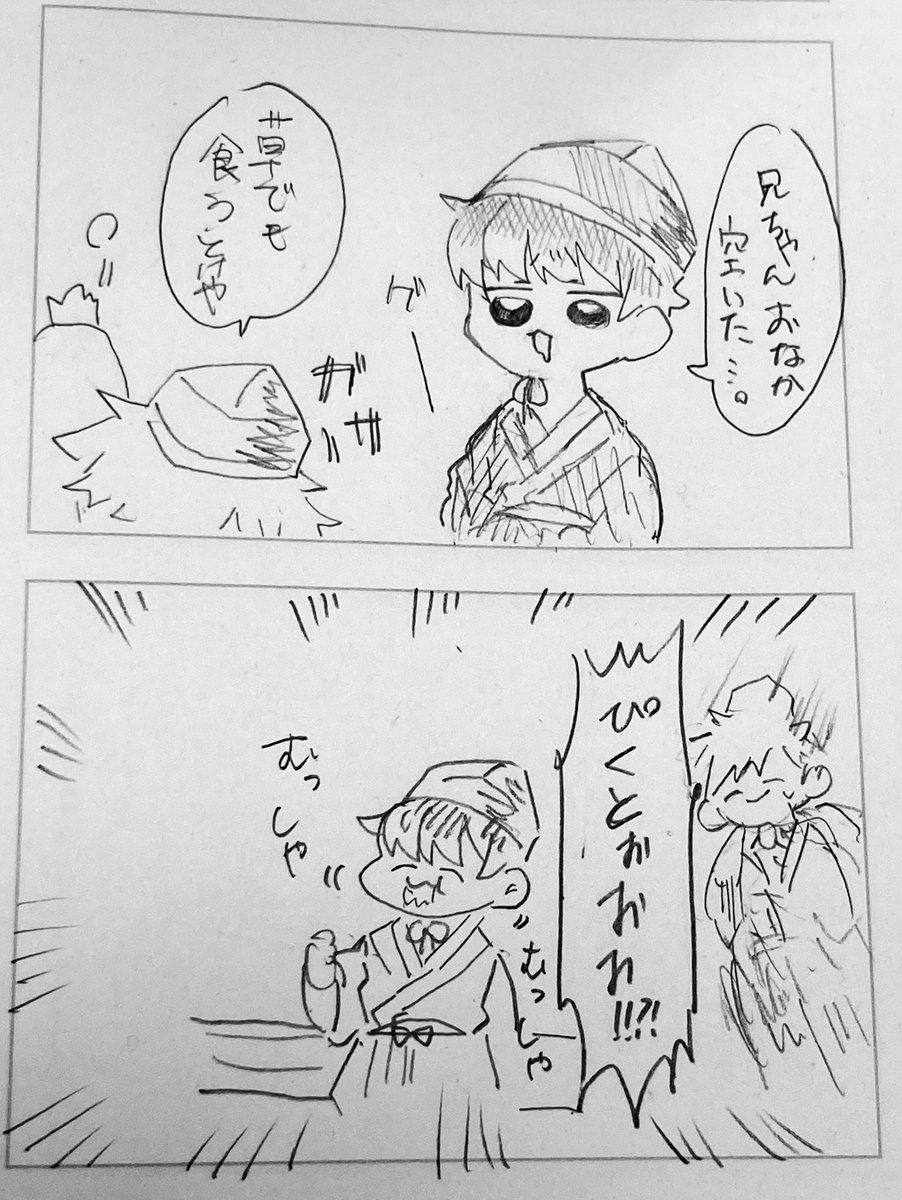 兄ちゃんおなか
空いた…。
グー
草でも
食うとけや
ガサ
むっしゃ
むっしゃ
ぴくとおおお!!?!